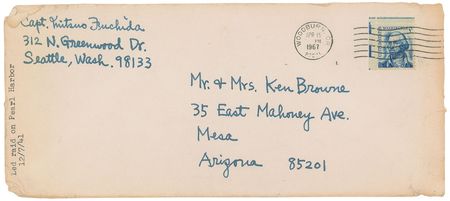 Capt. Mitsuo Fuchida
312 N. Greenwood Dr.
Seattle, Wash. 98133
WOODBURN, OR
APR 15
PM
1967
Mr. & Mrs. Ken Browne
35 East Mahoney Ave.
Mesa
Arizona 85201
Led raid on Pearl Harbor
12/7/41